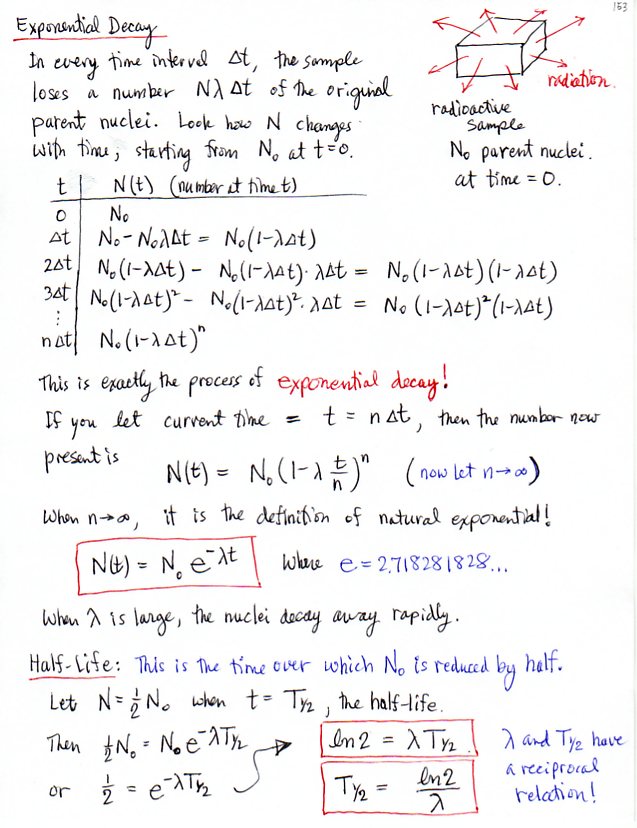 153
Exponential Decay
In every time interval Δt, the sample
loses a number NλΔt of the original
parent nuclei. Look how N changes
with time, starting from N₀ at t=0.
radiation.
radioactive
sample
N₀ parent nuclei.
at time = 0.
t | N(t) (number at time t)
0 | N₀
Δt | N₀ - N₀λΔt = N₀(1-λΔt)
2Δt | N₀(1-λΔt) - N₀(1-λΔt)·λΔt = N₀(1-λΔt)(1-λΔt)
3Δt | N₀(1-λΔt)² - N₀(1-λΔt)²·λΔt = N₀(1-λΔt)²(1-λΔt)
⋮
nΔt | N₀(1-λΔt)ⁿ
This is exactly the process of exponential decay!
If you let current time = t = nΔt, then the number now
present is N(t) = N₀(1-λ t/n)ⁿ (now let n→∞)
When n→∞, it is the definition of natural exponential!
N(t) = N₀ e^(-λt) where e = 2.718281828...
When λ is large, the nuclei decay away rapidly.
Half-Life: This is the time over which N₀ is reduced by half.
Let N = ½N₀ when t = T½, the half-life.
Then ½N₀ = N₀ e^(-λT½)
or ½ = e^(-λT½)
ln2 = λT½
T½ = ln2/λ
λ and T½ have
a reciprocal
relation!